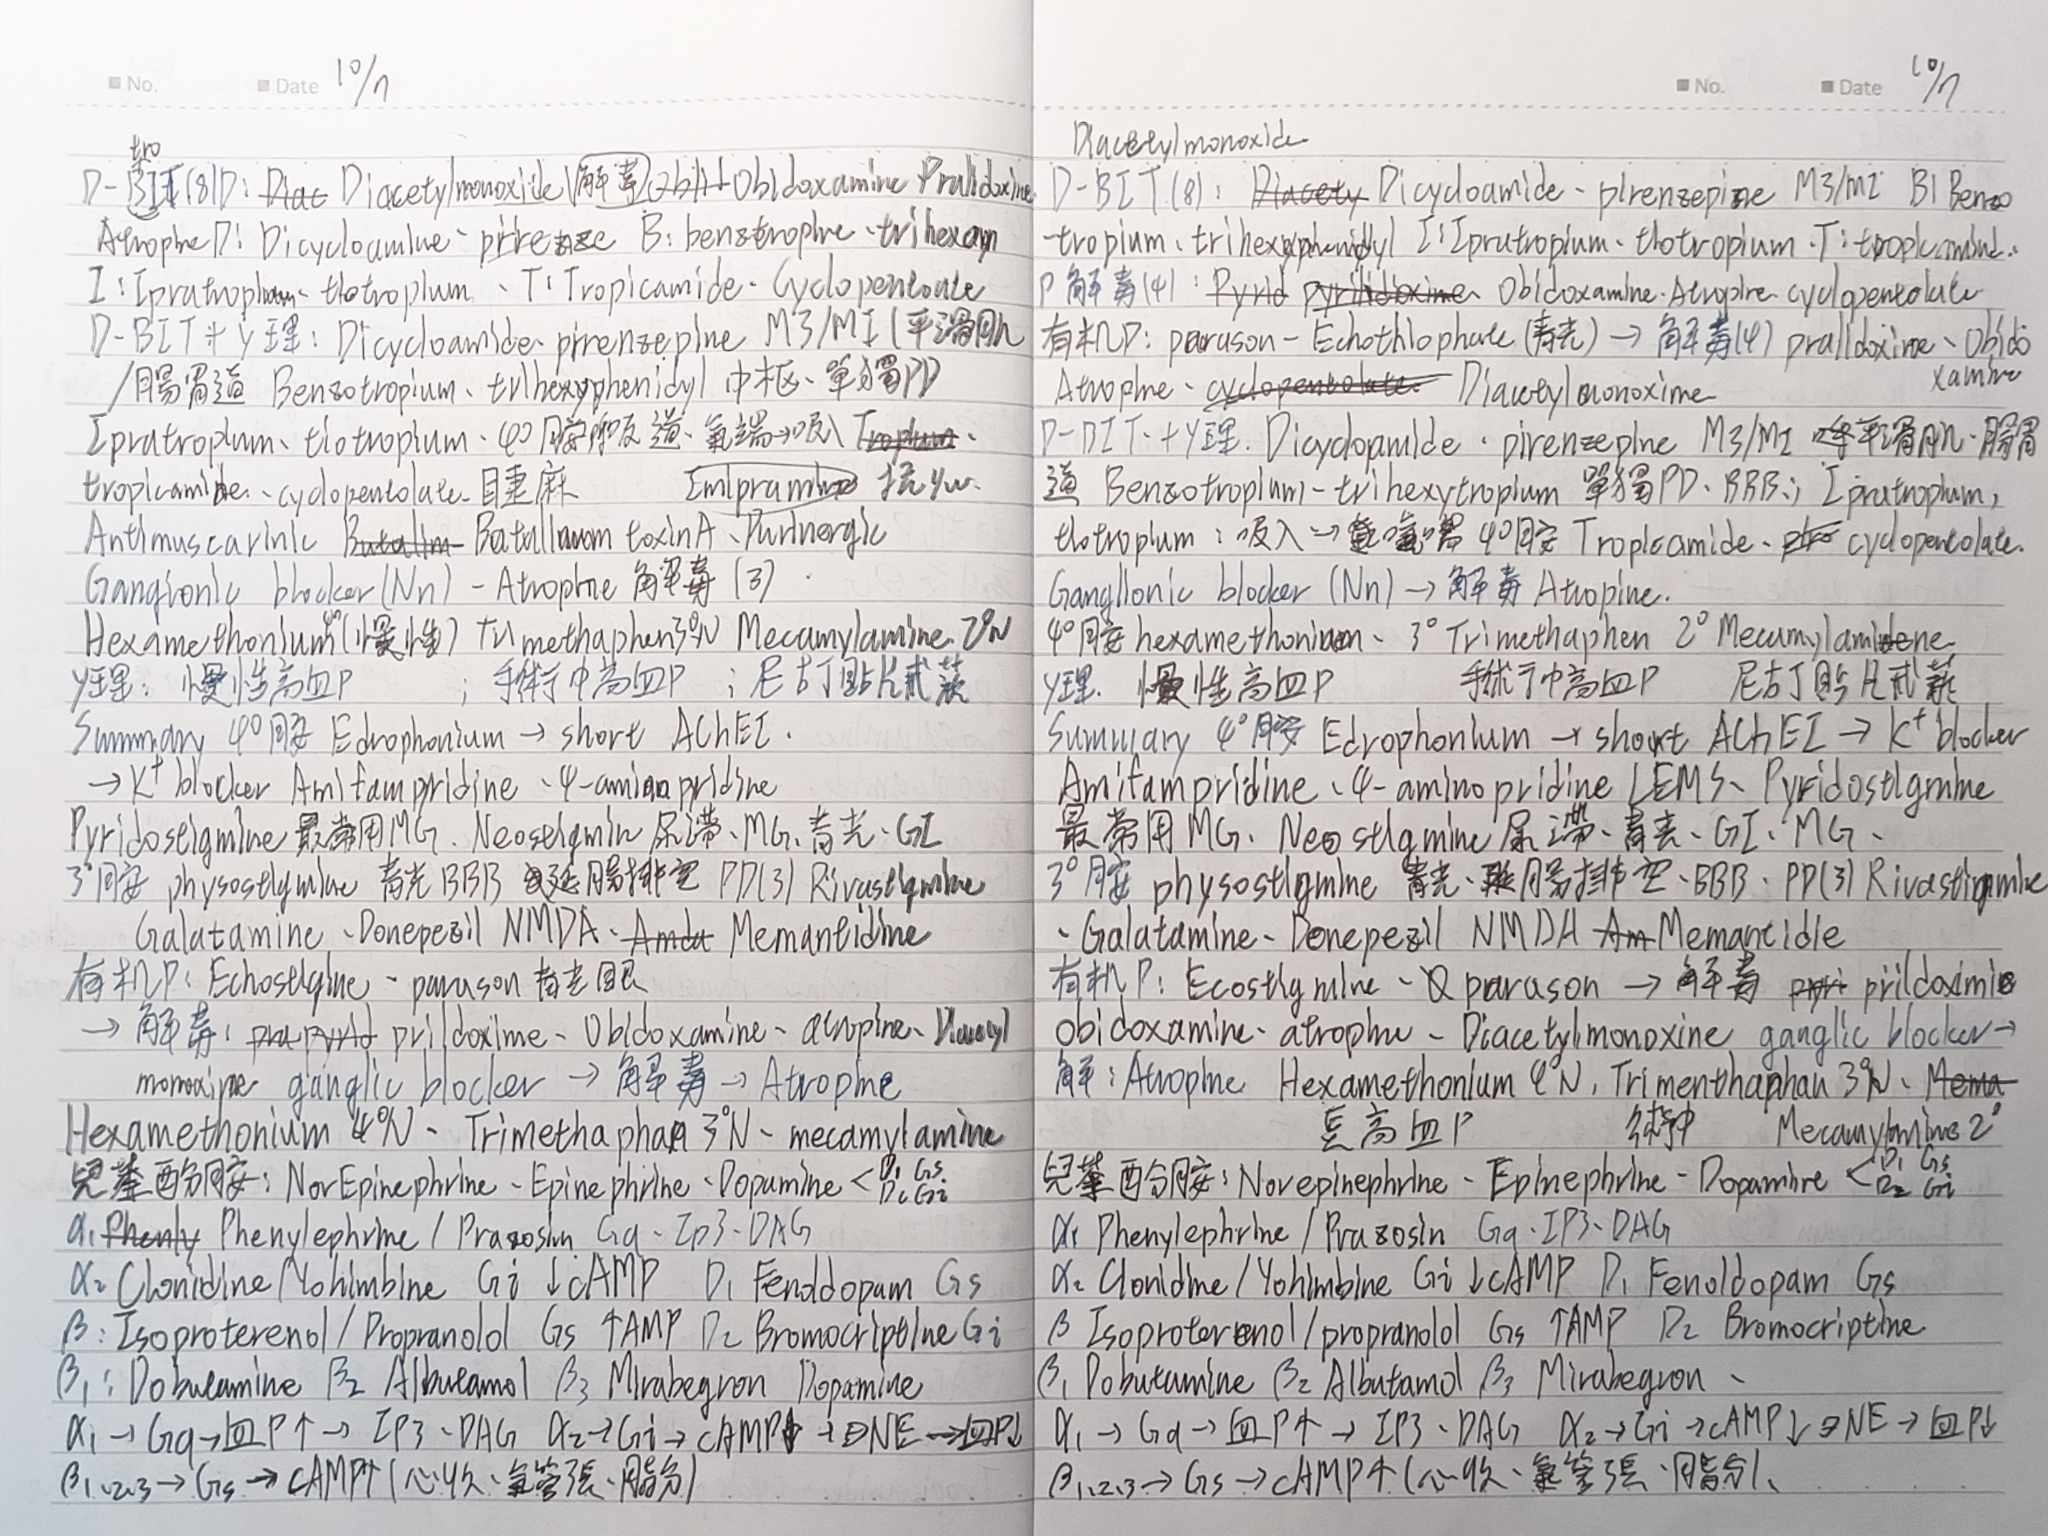 No. Date 10/7
tro
D-BIT(8)D: Diac Diacetylmonoxide(解毒) Obidoxamine Pralidoxime
Atropine D: Dicycloamine、 B: benztropine、trihexyn
I:Ipratropium、tiotropium、T:Tropicamide、Cyclopentoate
D-BIT+y理: Dicycloamide、pirenzepine M3/M1(平滑肌
/腸胃道 Benzotropium、trihexyphenidyl 中枢、單獨PD
Ipratropium、tiotropium、4°胺吸道、氣喘→吸入
tropicamide、cyclopentolate 睫麻 Imipramine 抗yu.
Antimuscarinic Batulinum toxinA、Purinergic
Gangionic blocker(Nn) - Atropine 解毒(3)
Hexamethonium 4°(慢性) Trimethaphen3°N Mecamylamine 2°N
y理: 慢性高血P ; 手術中高血P ; 尼古丁貼片戒菸
Summary 4°胺 Edrophonium → short AChEI.
→ K+ blocker Amifampridine、4-aminopridine
Pyridostigmine 最常用MG、Neostigmin 尿滯、MG、青光、GI
3°胺 physostigmine 青光 BBB 延腸排空 PD(3) Rivastigmine
Galatamine、Donepezil NMDA、Amda Memantidine
有机P: Echostigine、parason 青光眼
→ 解毒: prildoxime、Obidoxamine、atropine、Diacetyl
monoxine ganglic blocker → 解毒 → Atropine
Hexamethonium 4°N、Trimethaphan 3°N、mecamylamine
兒茶酚胺: NorEpinephrine、Epinephrine、Dopamine < D1 Gs D2 Gi
α1 Phenly Phenylephrine / Prazosin Gq、Ip3、DAG
α2 Clonidine/Yohimbine Gi ↓cAMP D1 Fenoldopam Gs
β: Isoproterenol/Propranolol Gs ↑AMP D2 Bromocriptine Gi
β1: Dobutamine β2 Albutamol β3 Mirabegron Dopamine
α1 → Gq → 血P↑ → IP3、DAG α2→Gi→ cAMP↓ → NE → 血P↓
β1.2.3 → Gs → cAMP↑(心收、氣管張、脂分)
No. Date 10/7
Diacetylmonoxide
D-BIT(8): Diacety Dicycloamide、pirenzepine M3/M1 B1 Benzo
tropium、trihexyphenidyl I:Ipratropium、tiotropium、T:tropicamide.
P解毒(4): Pyrid Obidoxamine、Atropine cyclopentolate
有机P: parason - Echothiophate(青光) → 解毒(4) pralidoxime、Obido
xamine
Atropine、cyclopentolate Diacetylmonoxime
D-BIT、+y理. Dicyclopamide、pirenzepine M3/M1 平滑肌、腸胃
道 Benzotropium-trihexytropium 單獨PD、BBB、; Ipratropium,
tiotropium: 吸入→氣喘 4°胺 Tropicamide、cyclopentolate.
Ganglionic blocker (Nn) → 解毒 Atropine.
4°胺 hexamethonium、3°Trimethaphen 2°Mecamylamine
y理. 慢性高血P 手術中高血P 尼古丁貼片戒菸
Summary 4°胺 Edrophonium → short AChEI → K+ blocker
Amifampridine、4-aminopridine LEMS、Pyridostigmine
最常用MG、Neostigmine 尿滯、青光、GI、MG、
3°胺 physostigmine 青光、腸排空、BBB、PD(3) Rivastigmine
、Galatamine、Donepezil NMDA Am Memantidie
有机P: Ecostigmine、parason → 解毒 pyri prildoximie
Obidoxamine、atropine、Diacetylmonoxine ganglic blocker→
解: Atropine Hexamethonium 4°N, Trimenthaphan 3°N、Mema
高血P 術中 Mecamylamine 2°
兒茶酚胺: Norepinephrine、Epinephrine、Dopamine < D1 Gs D2 Gi
α1 Phenylephrine / Prazosin Gq、IP3、DAG
α2 Clonidine/Yohimbine Gi ↓cAMP D1 Fenoldopam Gs
β Isoproterenol/propranolol Gs ↑AMP D2 Bromocriptine
β1 Dobutamine β2 Albutamol β3 Mirabegron、
α1 → Gq → 血P↑ → IP3、DAG α2→Gi→cAMP↓ NE → 血P↓
β1.2.3 → Gs → cAMP↑(心收、氣管張、脂分)、